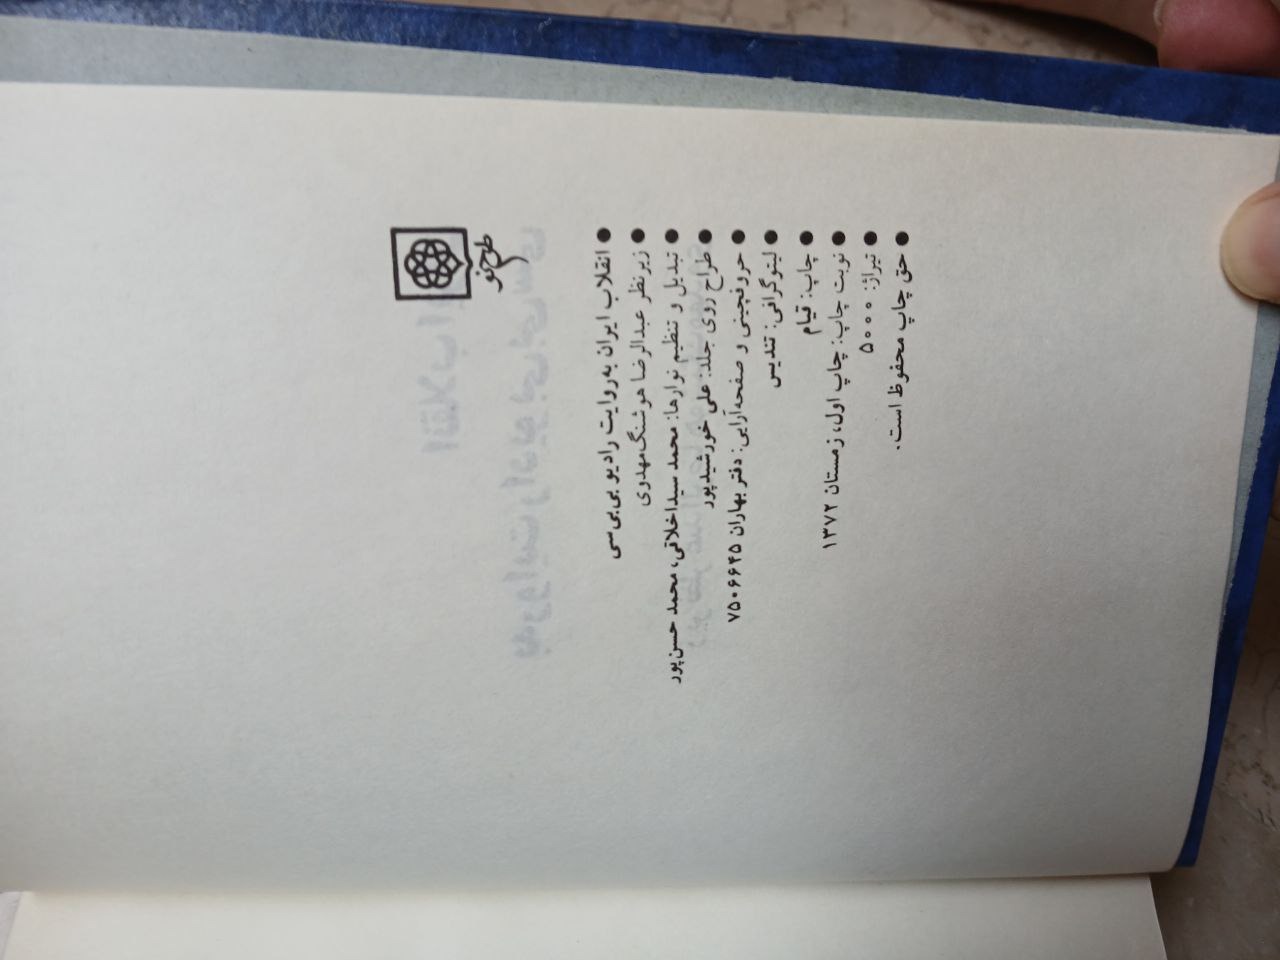 طرح نو
● انقلاب ایران به‌روایت رادیو بی‌بی‌سی
● زیر نظر عبدالرضا هوشنگ‌مهدوی
● تبدیل و تنظیم نوارها: محمد سیداخلاقی، محمد حسن‌پور
● طراح روی جلد: علی خورشیدپور
● حروفچینی و صفحه‌آرایی: دفتر بهاران ۷۵۰۶۶۴۵
● لیتوگرافی: تندیس
● چاپ: قیام
● نوبت چاپ: چاپ اول، زمستان ۱۳۷۲
● تیراژ: ۵۰۰۰
● حق چاپ محفوظ است.